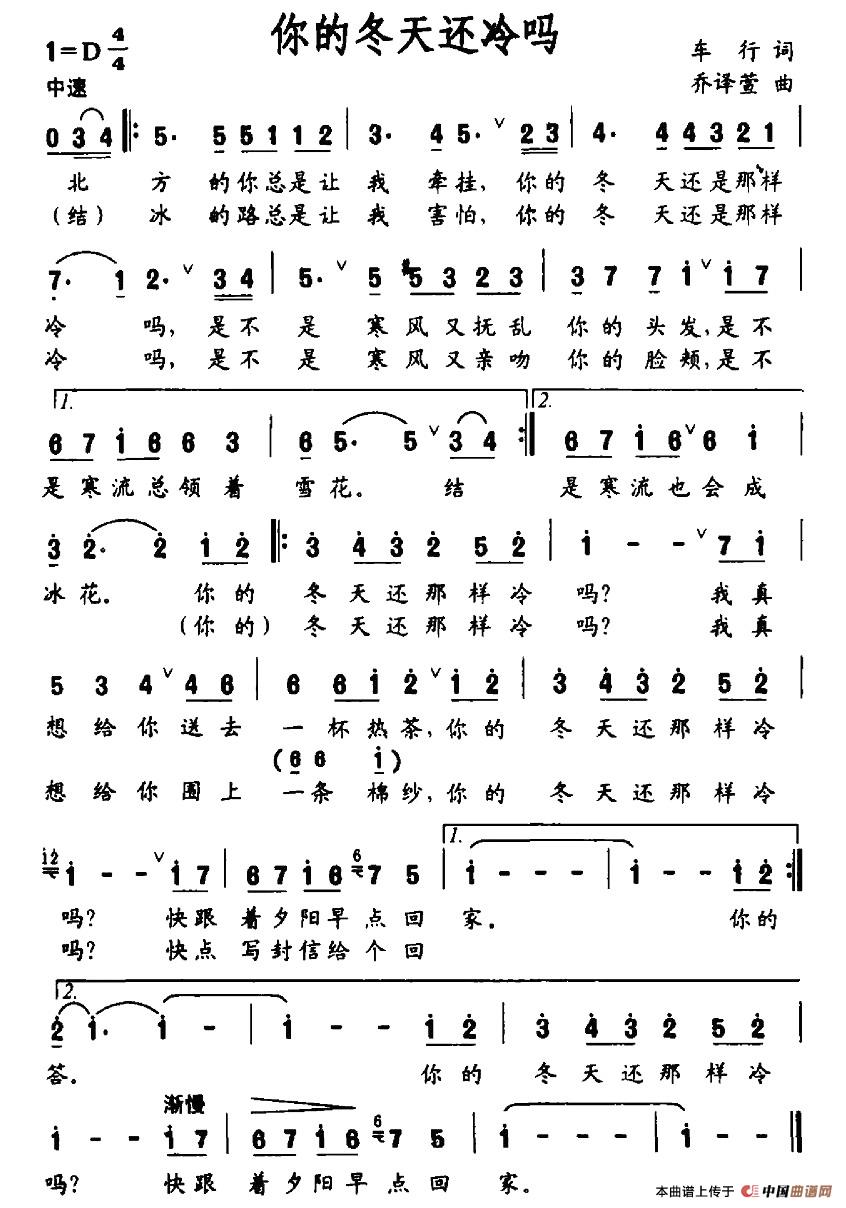 你的冬天还冷吗
1=D 4/4
车行 词
中速
乔译萱 曲
0 3 4 5· 5 5 1 1 2 3· 4 5· ∨ 2 3 4· 4 4 3 2 1
北方的你总是让我牵挂，你的冬天还是那样
（结）冰的路总是让我害怕，你的冬天还是那样
7· 1 2· ∨ 3 4 5· ∨ 5 #5 3 2 3 3 7 7 1 ∨ 1 7
冷吗，是不是寒风又抚乱你的头发，是不
冷吗，是不是寒风又亲吻你的脸颊，是不
1. 2.
6 7 1 6 6 3 6 5· 5 ∨ 3 4 6 7 1 6 ∨ 6 1
是寒流总领着雪花。结是寒流也会成
3 2· 2 1 2 3 4 3 2 5 2 1 - - ∨ 7 1
冰花。你的冬天还那样冷吗？我真
（你的）冬天还那样冷吗？我真
5 3 4 ∨ 4 6 6 6 1 2 ∨ 1 2 3 4 3 2 5 2
想给你送去一杯热茶，你的冬天还那样冷
(6 6 1)
想给你围上一条棉纱，你的冬天还那样冷
1.
12 1 - - ∨ 1 7 6 7 1 6 6 7 5 1 - - 1 - 1 2
吗？快跟着夕阳早点回家。你的
吗？快点写封信给个回
2.
2 1· 1 - 1 - - 1 2 3 4 3 2 5 2
答。你的冬天还那样冷
渐慢
1 - - 1 7 6 7 1 6 6 7 5 1 - - - 1 - -
吗？快跟着夕阳早点回家。
本曲谱上传于 中国曲谱网